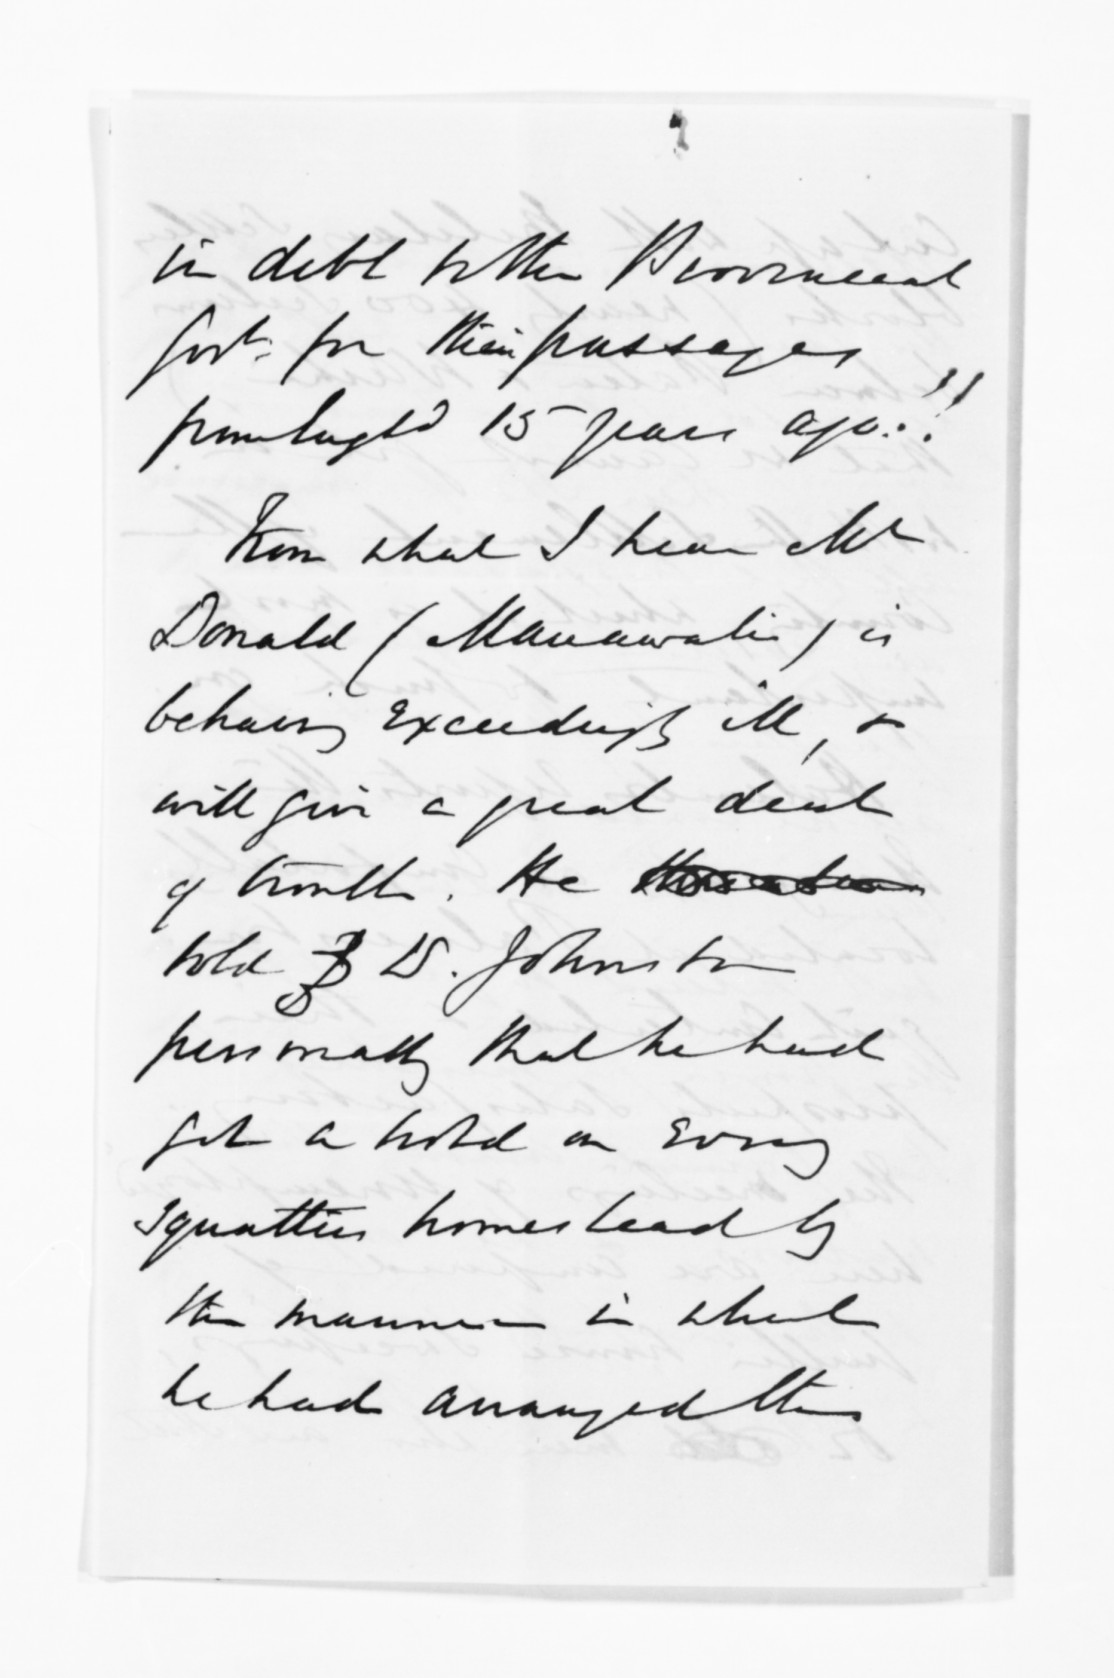 in debt to the Provincial
Govt. for their passages
from Engld 15 years ago.!!
From what I hear Mc
Donald (Manawatu) is
behaving exceedingly ill, &
will give a great deal
of trouble. He
told D. Johnston
personally that he had
got a hold on every
squatters homestead by
the manner in which
he had arranged the